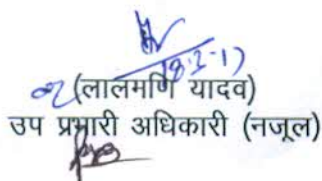 18-2-17
(लालमणि यादव)
उप प्रभारी अधिकारी (नजूल)